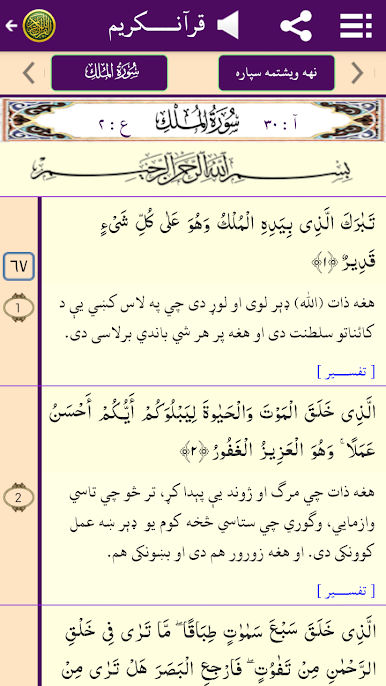 قرآنــــکریم
نهه ویشتمه سپاره
سُورَةُ المُلْك
آ : ۳۰
سُورَةُ المُلْك
ع : ۲
بِسْمِ اللَّهِ الرَّحْمَنِ الرَّحِيمِ
تَبٰرَكَ الَّذِى بِيَدِهِ الْمُلْكُ وَهُوَ عَلٰى كُلِّ شَىْءٍ
قَدِيرٌ ﴿١﴾
٦٧
1
هغه ذات (الله) ډېر لوی او لوړ دی چې په لاس کښې يې د
کائناتو سلطنت دی او هغه پر هر شي باندې برلاسی دی.
[ تفسـیر ]
الَّذِى خَلَقَ الْمَوْتَ وَالْحَيٰوةَ لِيَبْلُوَكُمْ أَيُّكُمْ أَحْسَنُ
عَمَلًا ۚ وَهُوَ الْعَزِيزُ الْغَفُورُ ﴿٢﴾
2
هغه ذات چې مرګ او ژوند يې پېدا کړ، تر څو چې تاسې
وازمايې، وګوري چې ستاسې څخه کوم يو ډېر ښه عمل
کوونکی دی. او هغه زورور هم دی او بښونکی هم.
[ تفسـیر ]
الَّذِى خَلَقَ سَبْعَ سَمٰوٰتٍ طِبَاقًا ۖ مَّا تَرٰى فِى خَلْقِ
الرَّحْمٰنِ مِنْ تَفٰوُتٍ ۖ فَارْجِعِ الْبَصَرَ هَلْ تَرٰى مِنْ